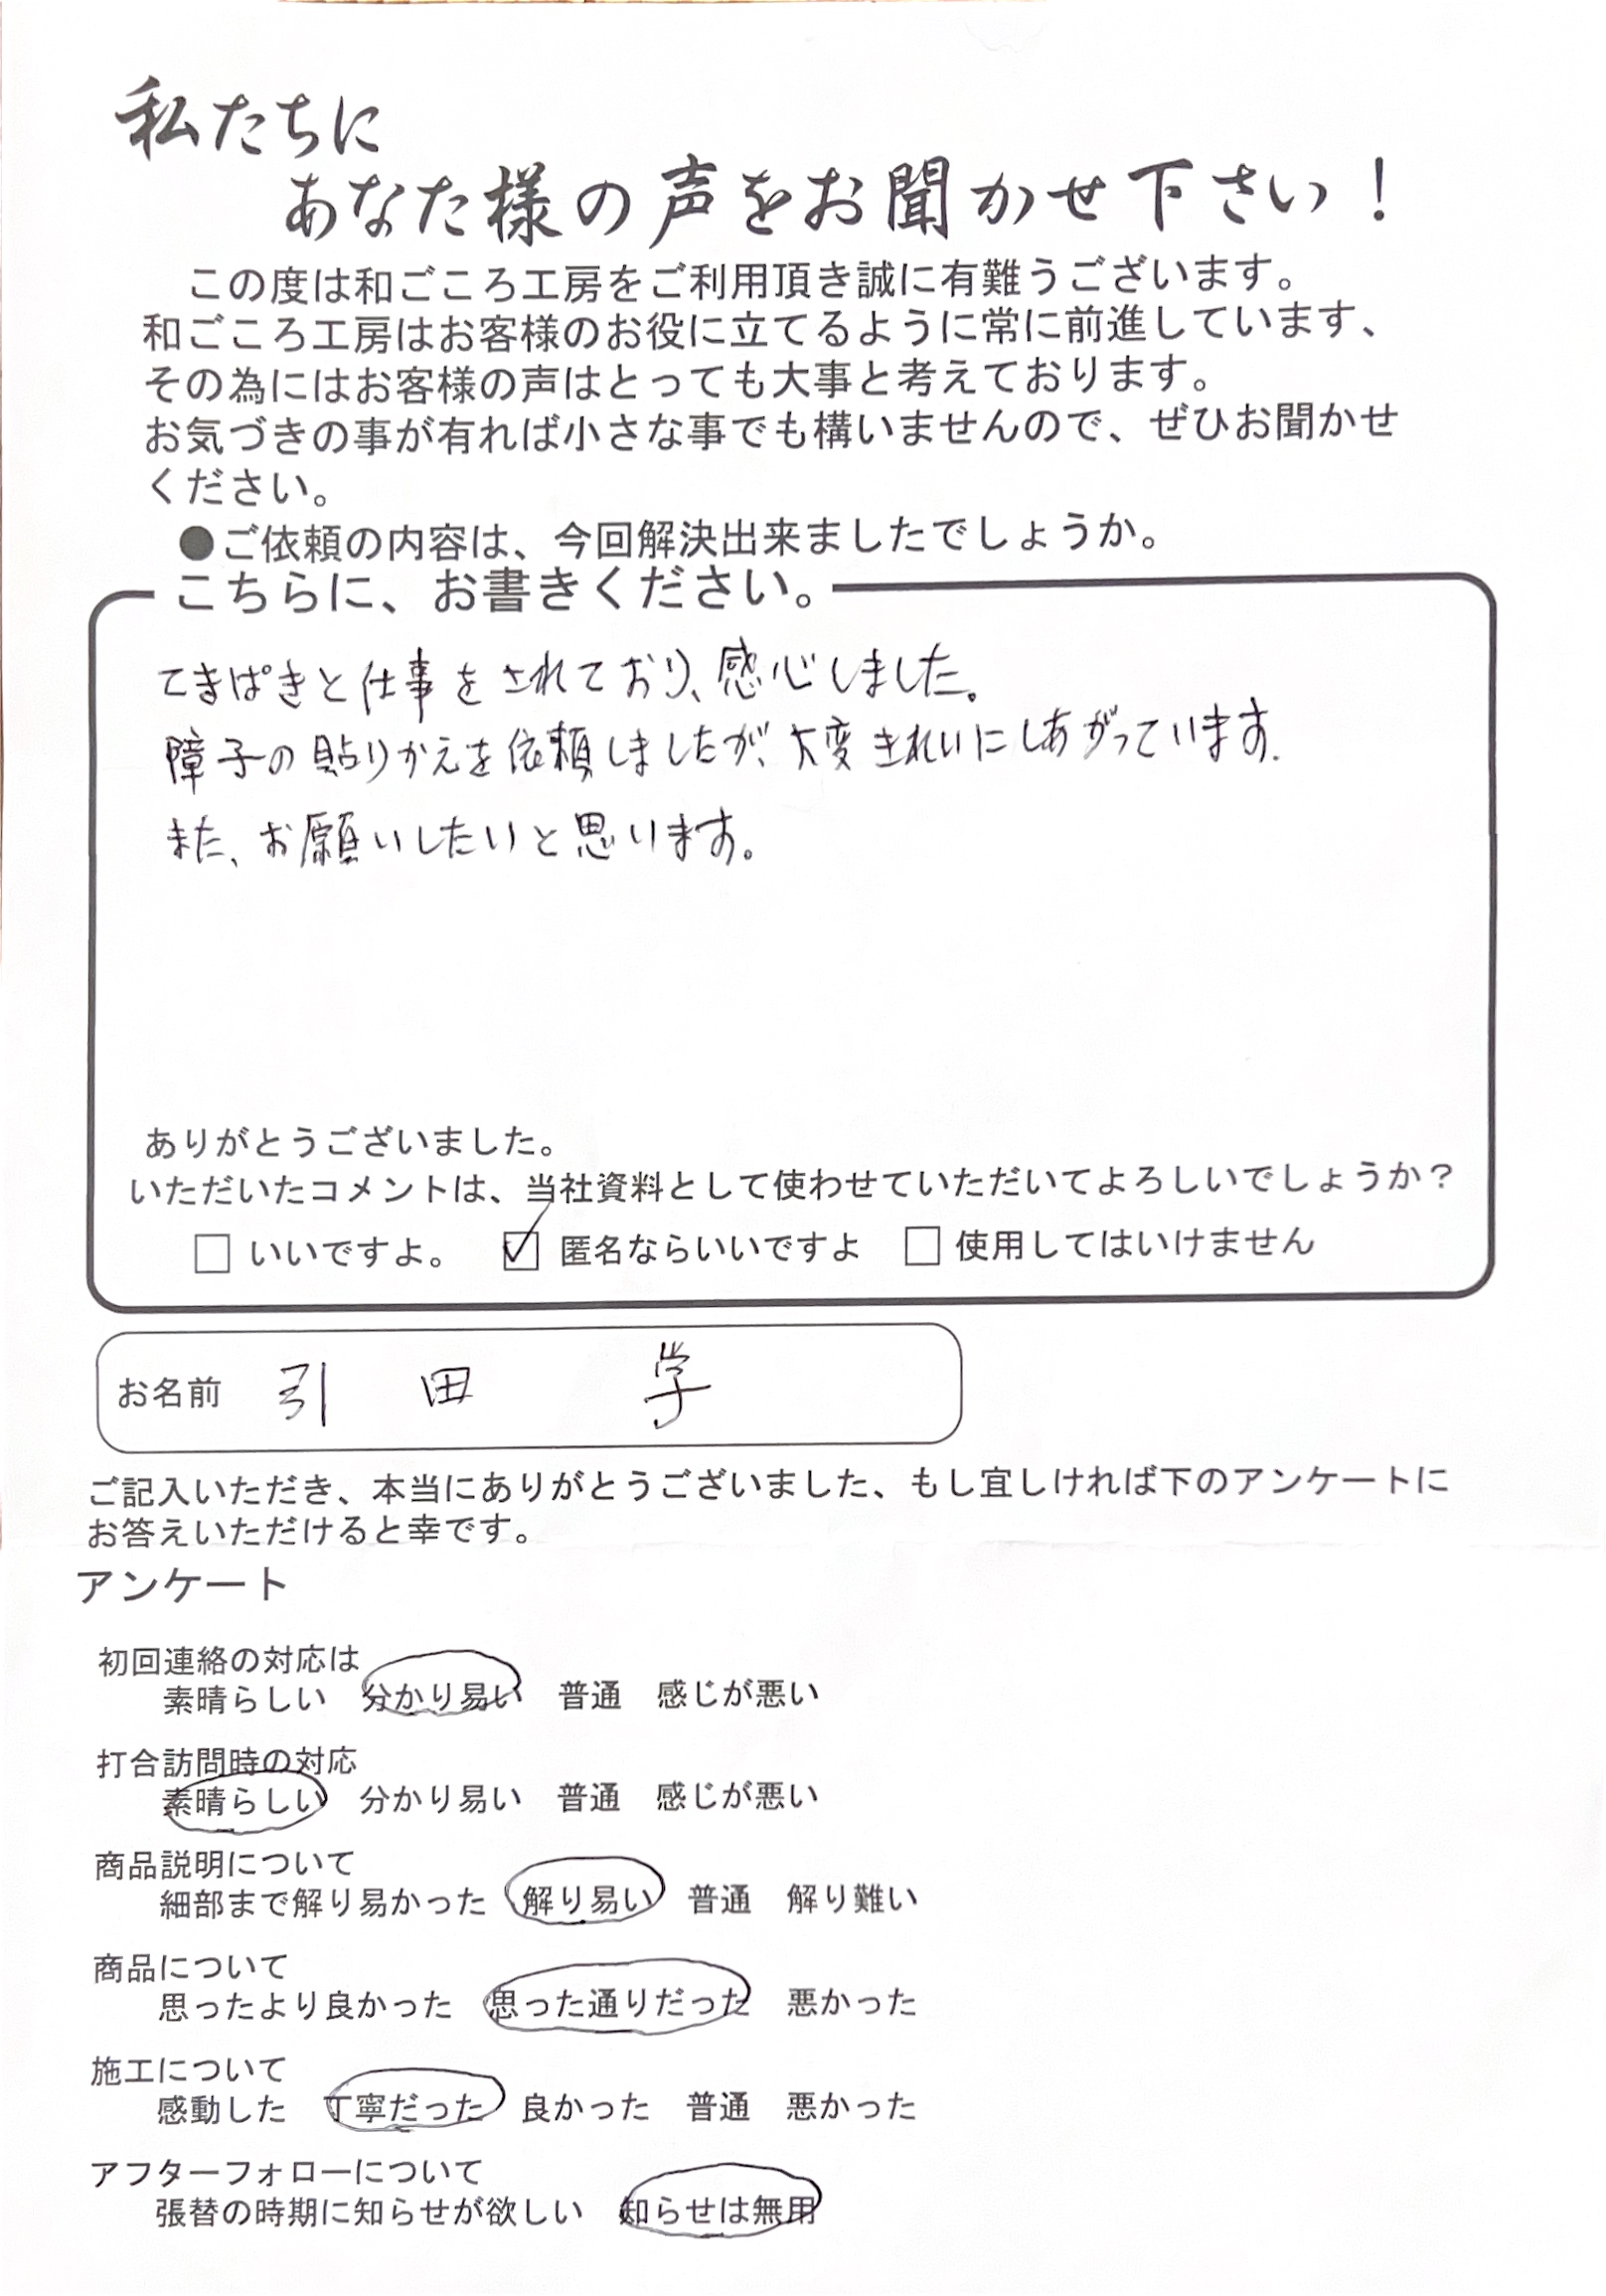 私たちに
あなた様の声をお聞かせ下さい！
この度は和ごころ工房をご利用頂き誠に有難うございます。
和ごころ工房はお客様のお役に立てるように常に前進しています、
その為にはお客様の声はとっても大事と考えております。
お気づきの事が有れば小さな事でも構いませんので、ぜひお聞かせ
ください。
●ご依頼の内容は、今回解決出来ましたでしょうか。
こちらに、お書きください。
てきぱきと仕事をされており、感心しました。
障子の貼りかえを依頼しましたが、大変きれいにしあがっています.
また、お願いしたいと思います。
ありがとうございました。
いただいたコメントは、当社資料として使わせていただいてよろしいでしょうか？
□ いいですよ。 ☑ 匿名ならいいですよ □ 使用してはいけません
お名前 引田 学
ご記入いただき、本当にありがとうございました、もし宜しければ下のアンケートに
お答えいただけると幸です。
アンケート
初回連絡の対応は
素晴らしい 分かり易い 普通 感じが悪い
打合訪問時の対応
素晴らしい 分かり易い 普通 感じが悪い
商品説明について
細部まで解り易かった 解り易い 普通 解り難い
商品について
思ったより良かった 思った通りだった 悪かった
施工について
感動した 丁寧だった 良かった 普通 悪かった
アフターフォローについて
張替の時期に知らせが欲しい 知らせは無用